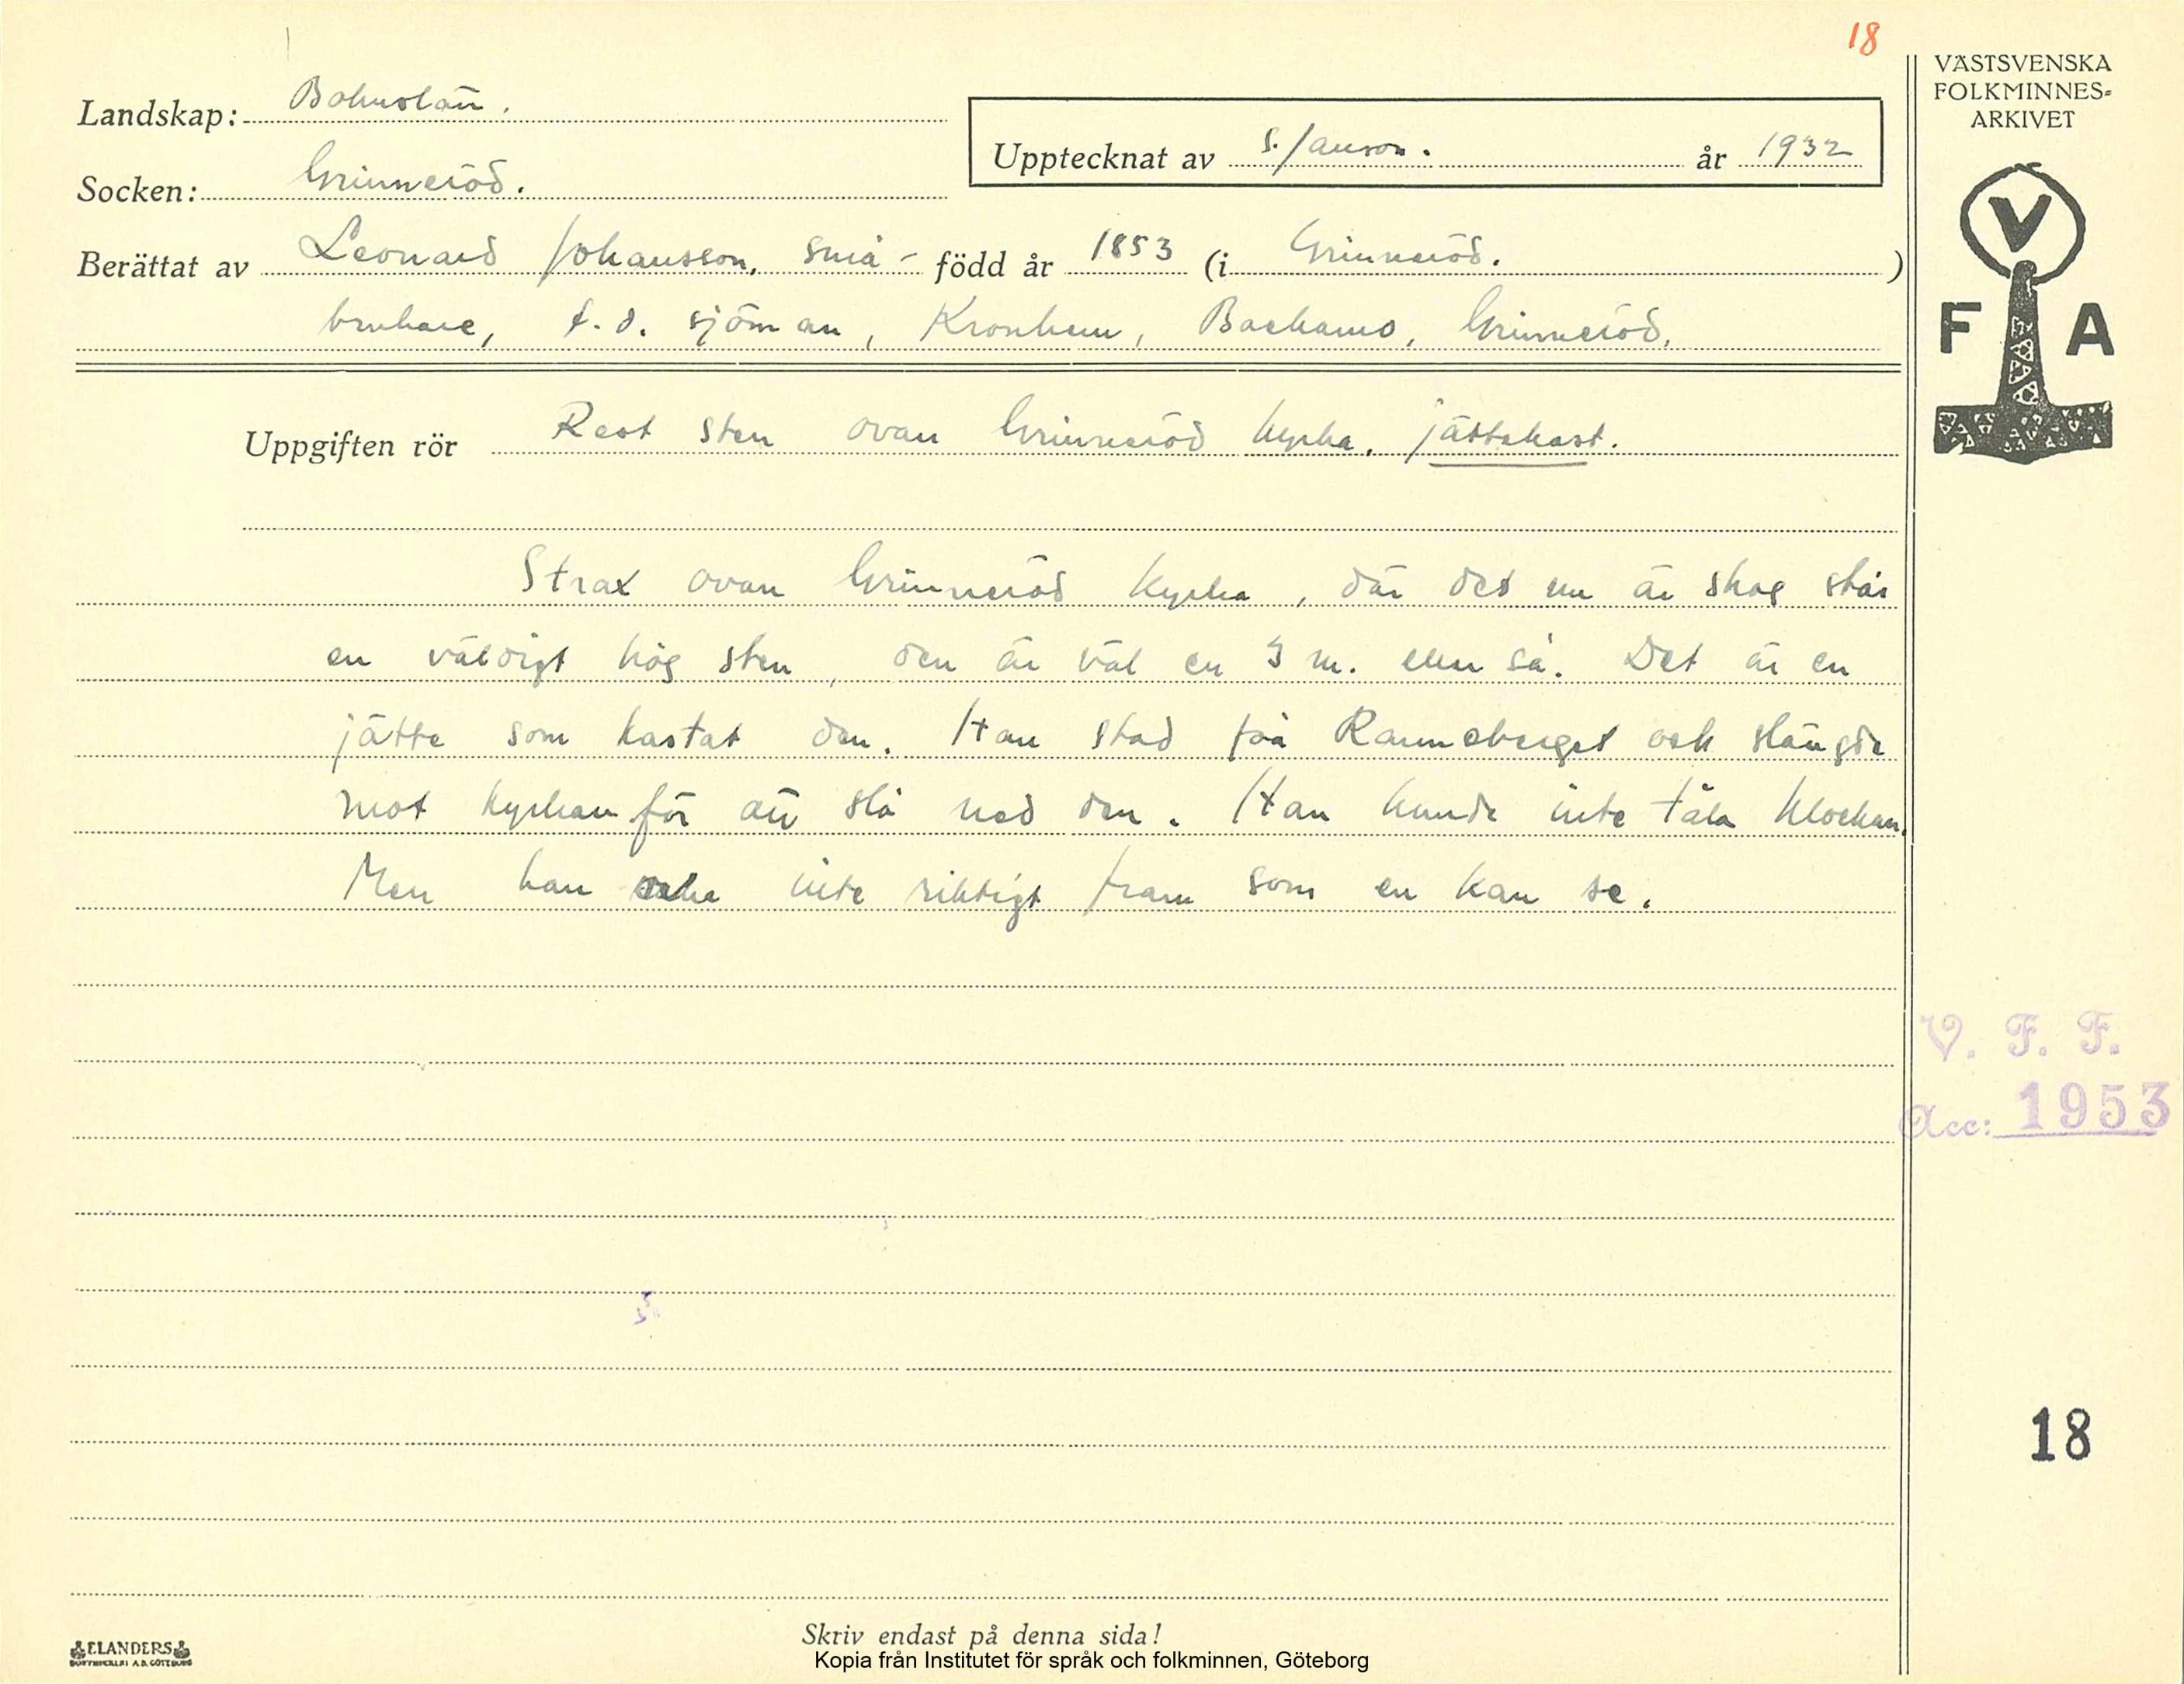 18
VÄSTSVENSKA
FOLKMINNES-
ARKIVET
Landskap: Bohuslän.
Upptecknat av S. Janson. år 1932
Socken: Grinneröd.
Berättat av Leonard Johansson, små- född år 1853 (i Grinneröd.)
brukare, f.d. sjöman, Kronhem, Backamo, Grinneröd.
V
F A
Uppgiften rör Rest sten ovan Grinneröd kyrka, jättekast.
Strax ovan Grinneröd kyrka, där det nu är skog står
en väldigt hög sten, den är väl en 3 m. eller så. Det är en
jätte som kastat den. Han stod på Ranneberget och slängde
mot kyrkan för att slå ned den. Han kunde inte tåla klockan.
Men han inte riktigt fram som en kan se.
V. F. F.
Acc: 1953
18
ELANDERS
Skriv endast på denna sida!
Kopia från Institutet för språk och folkminnen, Göteborg